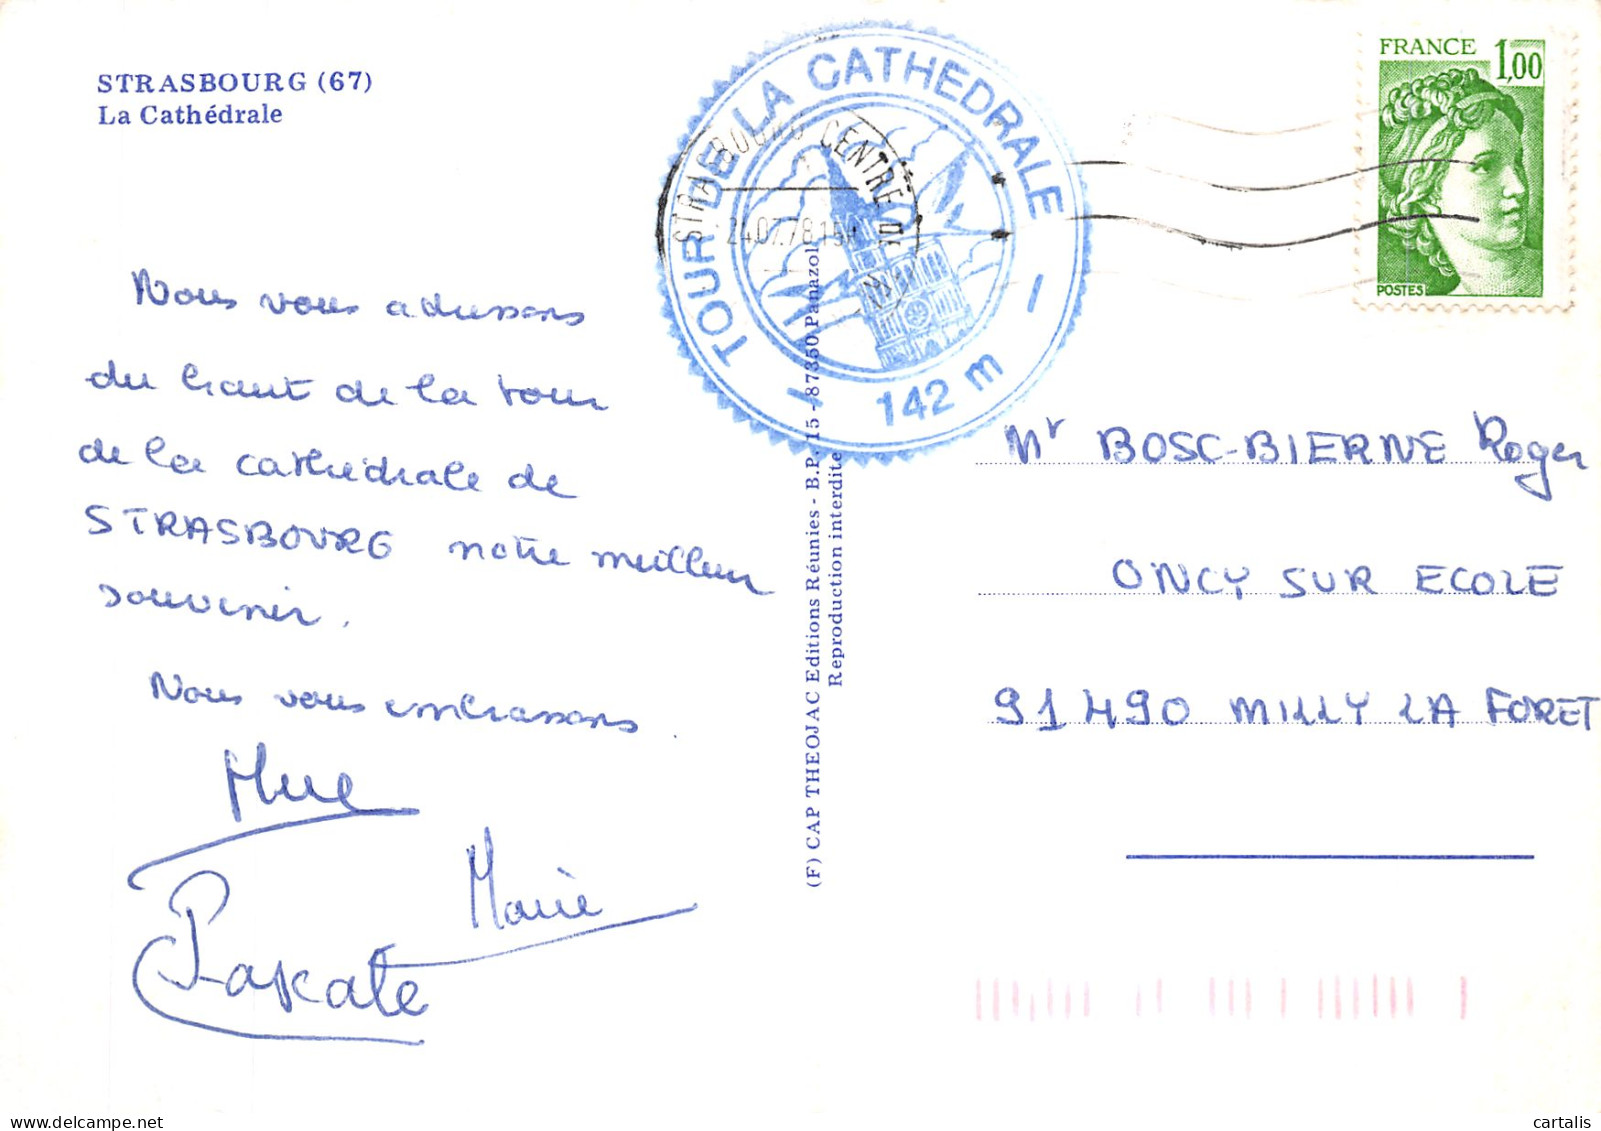 STRASBOURG (67)
La Cathédrale
Nous vous adressons
du haut de la tour
de la cathédrale de
STRASBOURG notre meilleur
souvenir.
Nous vous embrassons
Marie
TOUR DE LA CATHEDRALE
142 m
STRASBOURG CENTRE
24.07.78 15H
(F) CAP THEOJAC Editions Réunies - B.P. 15 - 87350 Panazol
Reproduction interdite
FRANCE 1,00
POSTES
Mr BOSC-BIERNE Roger
ONCY SUR ECOLE
91490 MILLY LA FORET
cartalis
delcampe.net